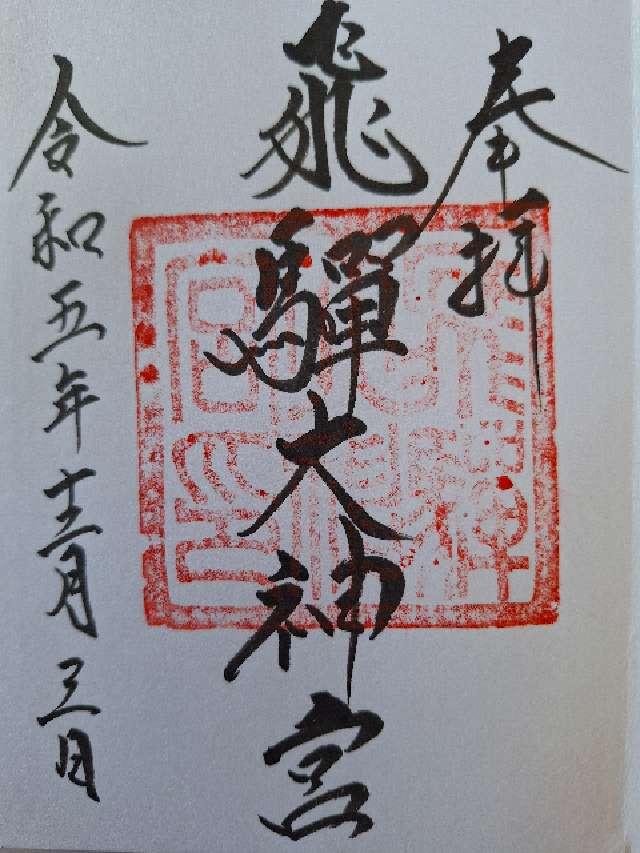 奉拝
飛驒大神宮
令和五年十二月三日